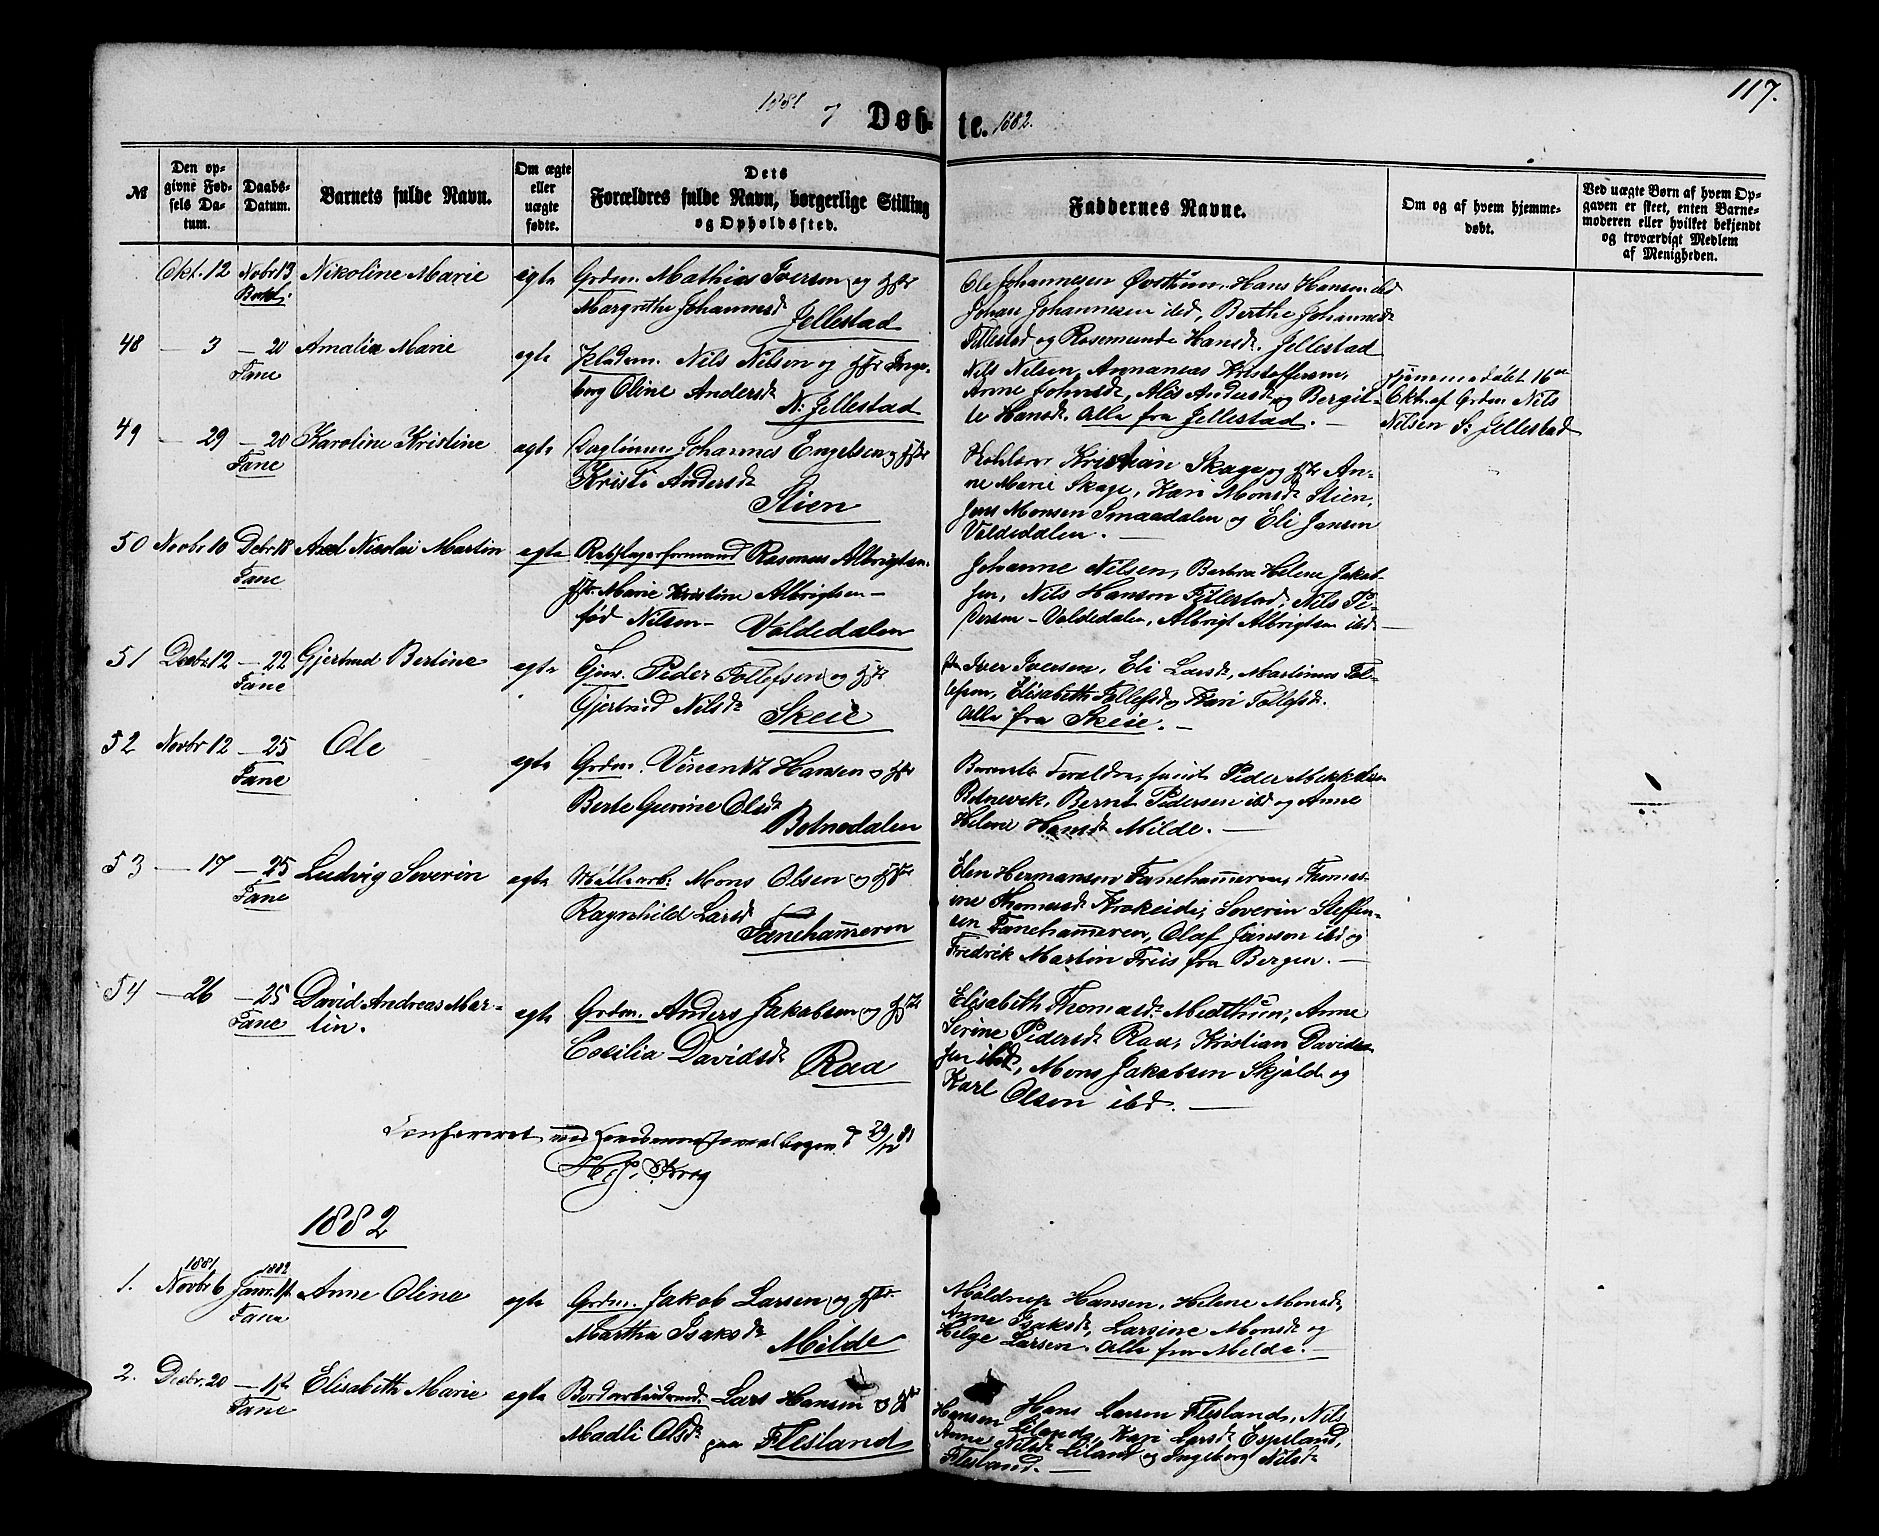 117.
1881 og Døb- te. 1882.
№
Den opgivne Fødsels Datum.
Daabs-Datum.
Barnets fulde Navn.
Om ægte eller uægte fødte.
Dets Forældres fulde Navn, borgerlige Stilling og Opholdssted.
Faddernes Navne.
Om og af hvem hjemmedøbt.
Ved uægte Børn af hvem Opgaven er skeet, enten Barnemoderen eller hvilket bekjendt og troværdigt Medlem af Menigheden.
Okt. 12 Novbr 13 Nikoline Marie egte Grdm. Mathias Iversen og Hstr
Margrethe Johannesd.
Jellestad
Ole Johannesen Øvsttun, Hans Hansen ibd
Johan Johannesen ibd, Berthe Johannesd.
Fillestad og Rosemunde Hansd. Jellestad
48 — 3 — 20 Amalie Marie
Fane
egte Nils Nilsen og Hstr Inge-
borg Oline Andersd.
N. Jellestad
Nils Nilsen, Annanias Kristoffersen,
Anne Johnsd., Alis Andersd. og Bergit-
te Hansd. Alle fra Jellestad. —
Hjemmedøbt 16de
Okt. af Grdm. Nils
Nilsen S. Jellestad
49 — 29 — 20 Karoline Kristine
Fane
egte Daglønner Johannes Engelsen og Hstr
Kristi Andersd.
Stien
Kristian Skage og Hstr An-
ne Marie Skage, Kari Monsd. Stien,
Jens Monsen Smaadalen og Eli Jansen
Valdedalen. —
50 Novbr 10 Debr 18 Axel Nicolai Martin
Fane
egte Rebslagerformand Rasmus Albrigtsen
Hstr. Marie Kristine Albrigtsen —
fød Nilsen — Valdedalen
Johanne Nilsen, Barbra Helene Jakob-
sen, Nils Hanson Fillestad, Nils Pe-
dersen — Valdedalen, Albrigt Albrigtsen ibd —
51 Decbr 12 — 22 Gjertrud Bertine
Fane
egte Peder Tollefsen og Hstr
Gjertrud Nilsd.
Skeie
Iver Iversen, Eli Larsd., Martinus Tol-
lefsen, Elisabeth Tollefsd. og Kari Tollefsd.
Alle fra Skeie. —
52 Novbr 12 — 25 Ole
Fane
egte Grdm. Vincentz Hansen og Hstr
Berte Gurine Olsd.
Botnedalen
Barnets Foreldre, samt Peder Mikkelsen
Botnevik, Bernt Pedersen ibd og Anne
Helene Hansd. Milde. —
53 — 17 — 25 Ludvig Severin
Fane
egte Møllearb. Mons Olsen og Hstr
Ragnhild Larsd.
Fanehammeren
Elen Hermansen Fanehammeren, Thomas-
ine Thomasd. Krokeide, Severin Steffen-
sen Fanehammeren, Olaf Jansen ibd og
Fredrik Martin Friis fra Bergen. —
54 — 26 — 25 David Andreas Mar-
tin.
Fane
egte Grdm. Anders Jakobsen og Hstr
Cecilia Davidsd.
Raa
Elisabeth Thomasd. Midthun, Anne
Serine Pedersd. Raa, Kristian David-
sen ibd, Mons Jakobsen Skjold og
Karl Olsen ibd. —
Confereret med 29/12 81
H. J. Krog
1882
1881 1882
1. Novbr 6 Janr. 1st Anne Oline
Fana
egte Grdm. Jakob Larsen og Hstr.
Martha Isaksd.
Milde
Møldrup Hansen, Helene Monsd.,
Anne Isaksd., Larsine Monsd. og
Helge Larsen. Alle fra Milde. —
2. Decbr. 20 — 1st Elisabeth Marie
Fane
egte Lars Hansen og Hstr
Madli Olsd. paa Flesland
Hans Larsen Flesland, Nils
Hansen Liland, Kari Larsd. Espeland,
Anne Nilsd. Liland og Ingeborg Nilsd.
Flesland. —